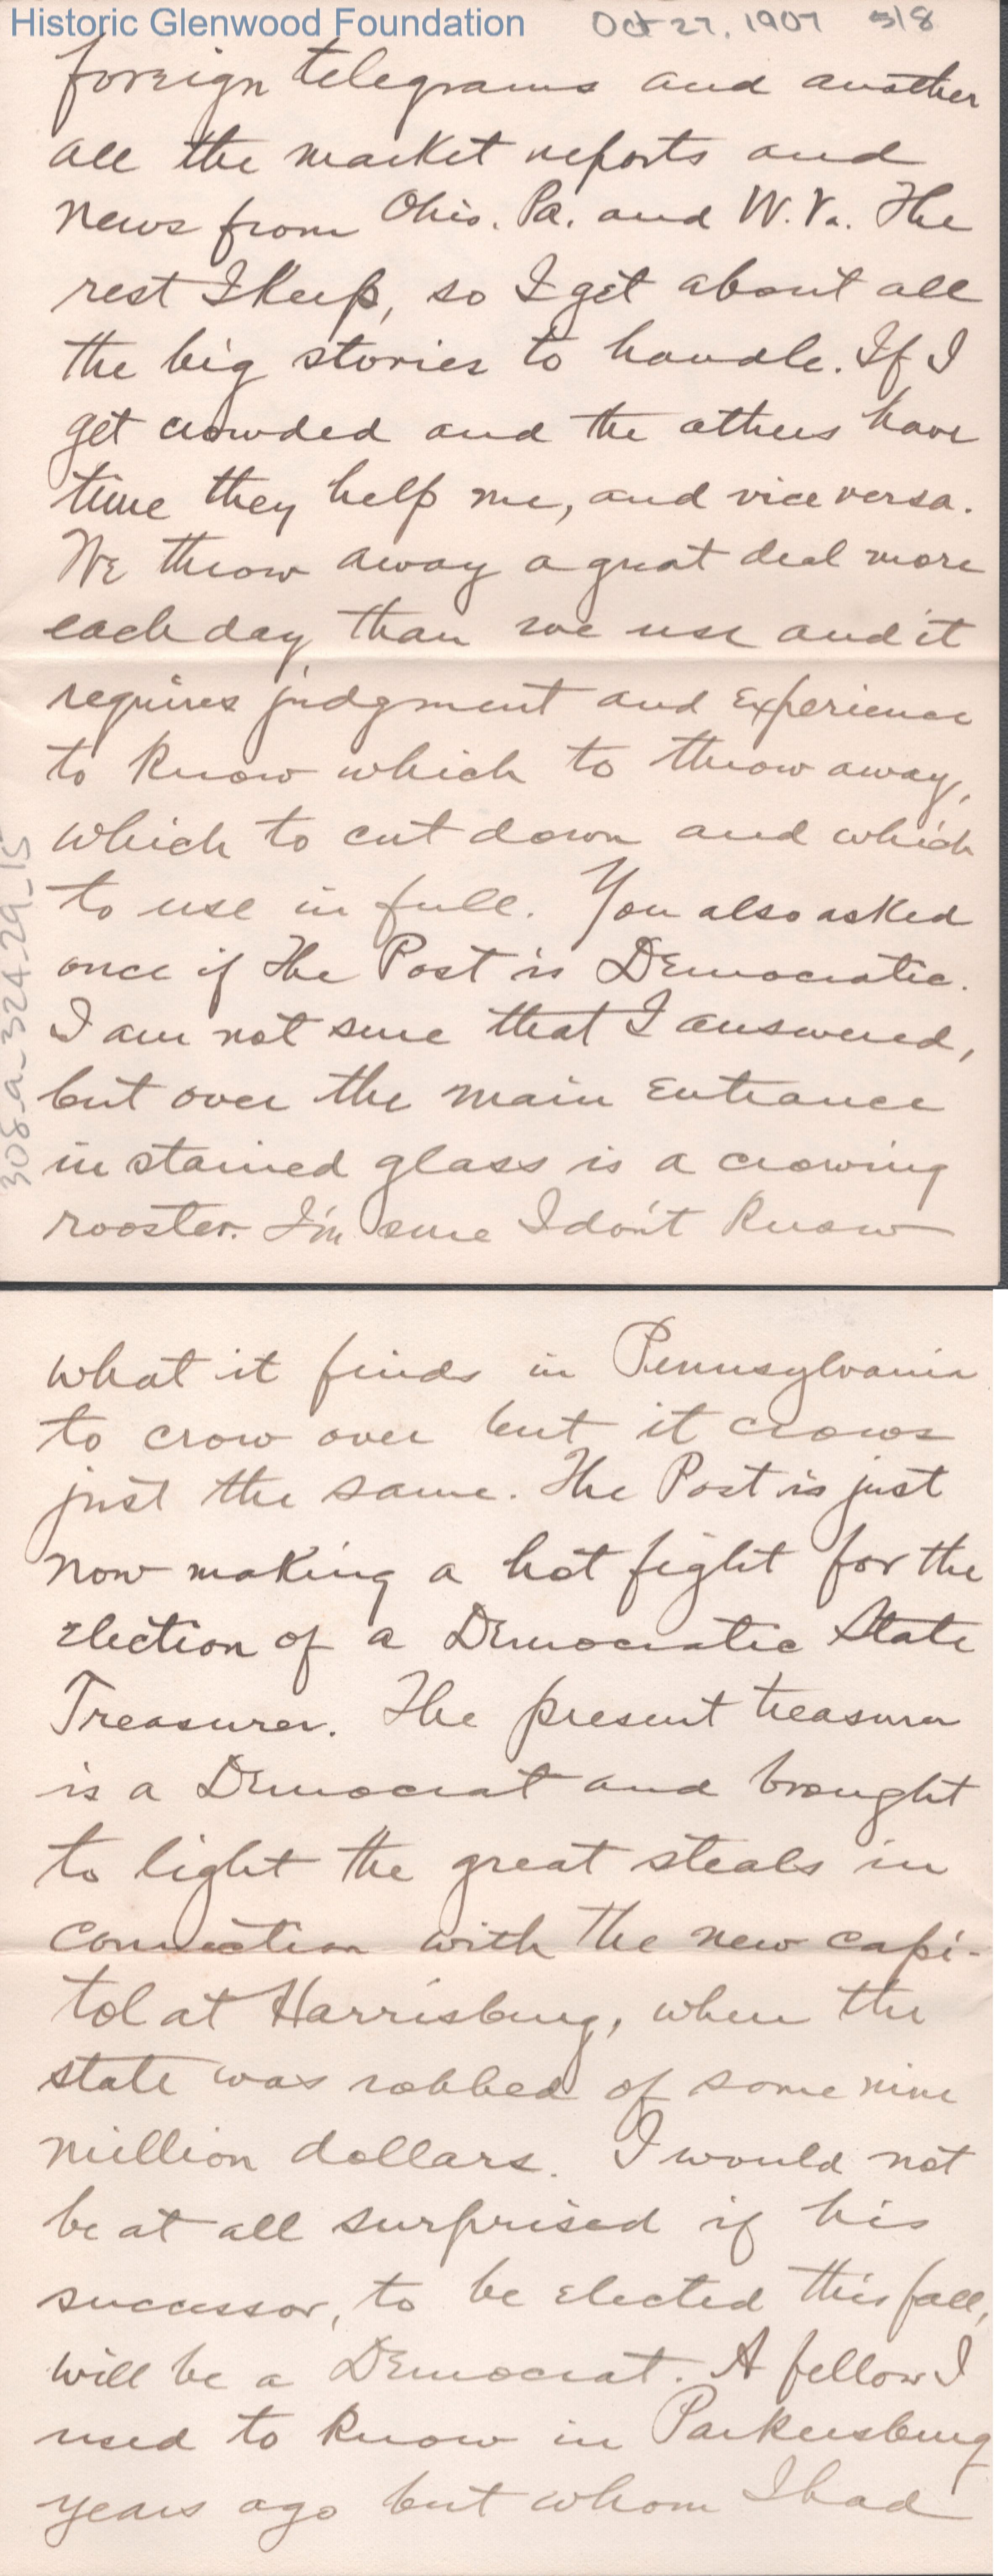 Historic Glenwood Foundation Oct 27, 1907 5/8
foreign telegrams and another
all the market reports and
news from Ohio. Pa. and W. Va. The
rest I keep, so I get about all
the big stories to handle. If I
get crowded and the others have
time they help me, and vice versa.
We throw away a great deal more
each day than we use and it
requires judgment and experience
to know which to throw away,
which to cut down and which
to use in full. You also asked
once if The Post is Democratic.
I am not sure that I answered,
but over the main entrance
in stained glass is a crowing
rooster. I'm sure I don't know
308_a_324_29_15
what it finds in Pennsylvania
to crow over but it crows
just the same. The Post is just
now making a hot fight for the
election of a Democratic State
Treasurer. The present treasurer
is a Democrat and brought
to light the great steals in
connection with the new capi-
tol at Harrisburg, when the
state was robbed of some nine
million dollars. I would not
be at all surprised if his
successor, to be elected this fall,
will be a Democrat. A fellow I
used to know in Parkersburg
years ago but whom I had